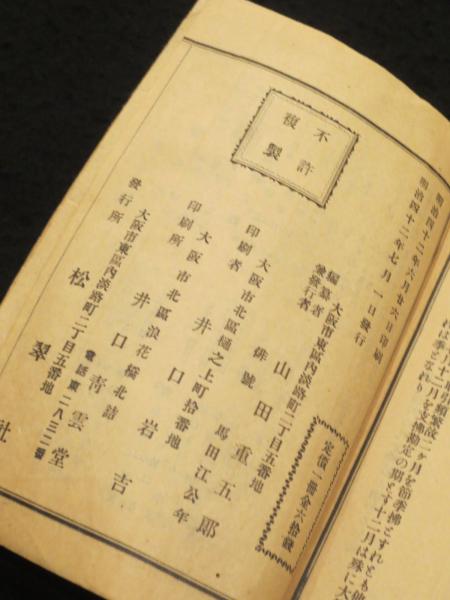 れは季となれり
明治四十二年六月廿六日印刷
明治四十二年七月一日發行
定價一冊金六拾錢
不許
複製
大阪市東區內淡路町二丁目五番地
編纂者
兼發行者
山田重五郎
俳號 馬田江公年
大阪市北區樋之上町拾番地
印刷者 井口岩吉
大阪市北區浪花橋北詰
印刷所 井口靑雲堂
大阪市東區內淡路町二丁目五番地
發行所 松琴社
電話東二八三二番